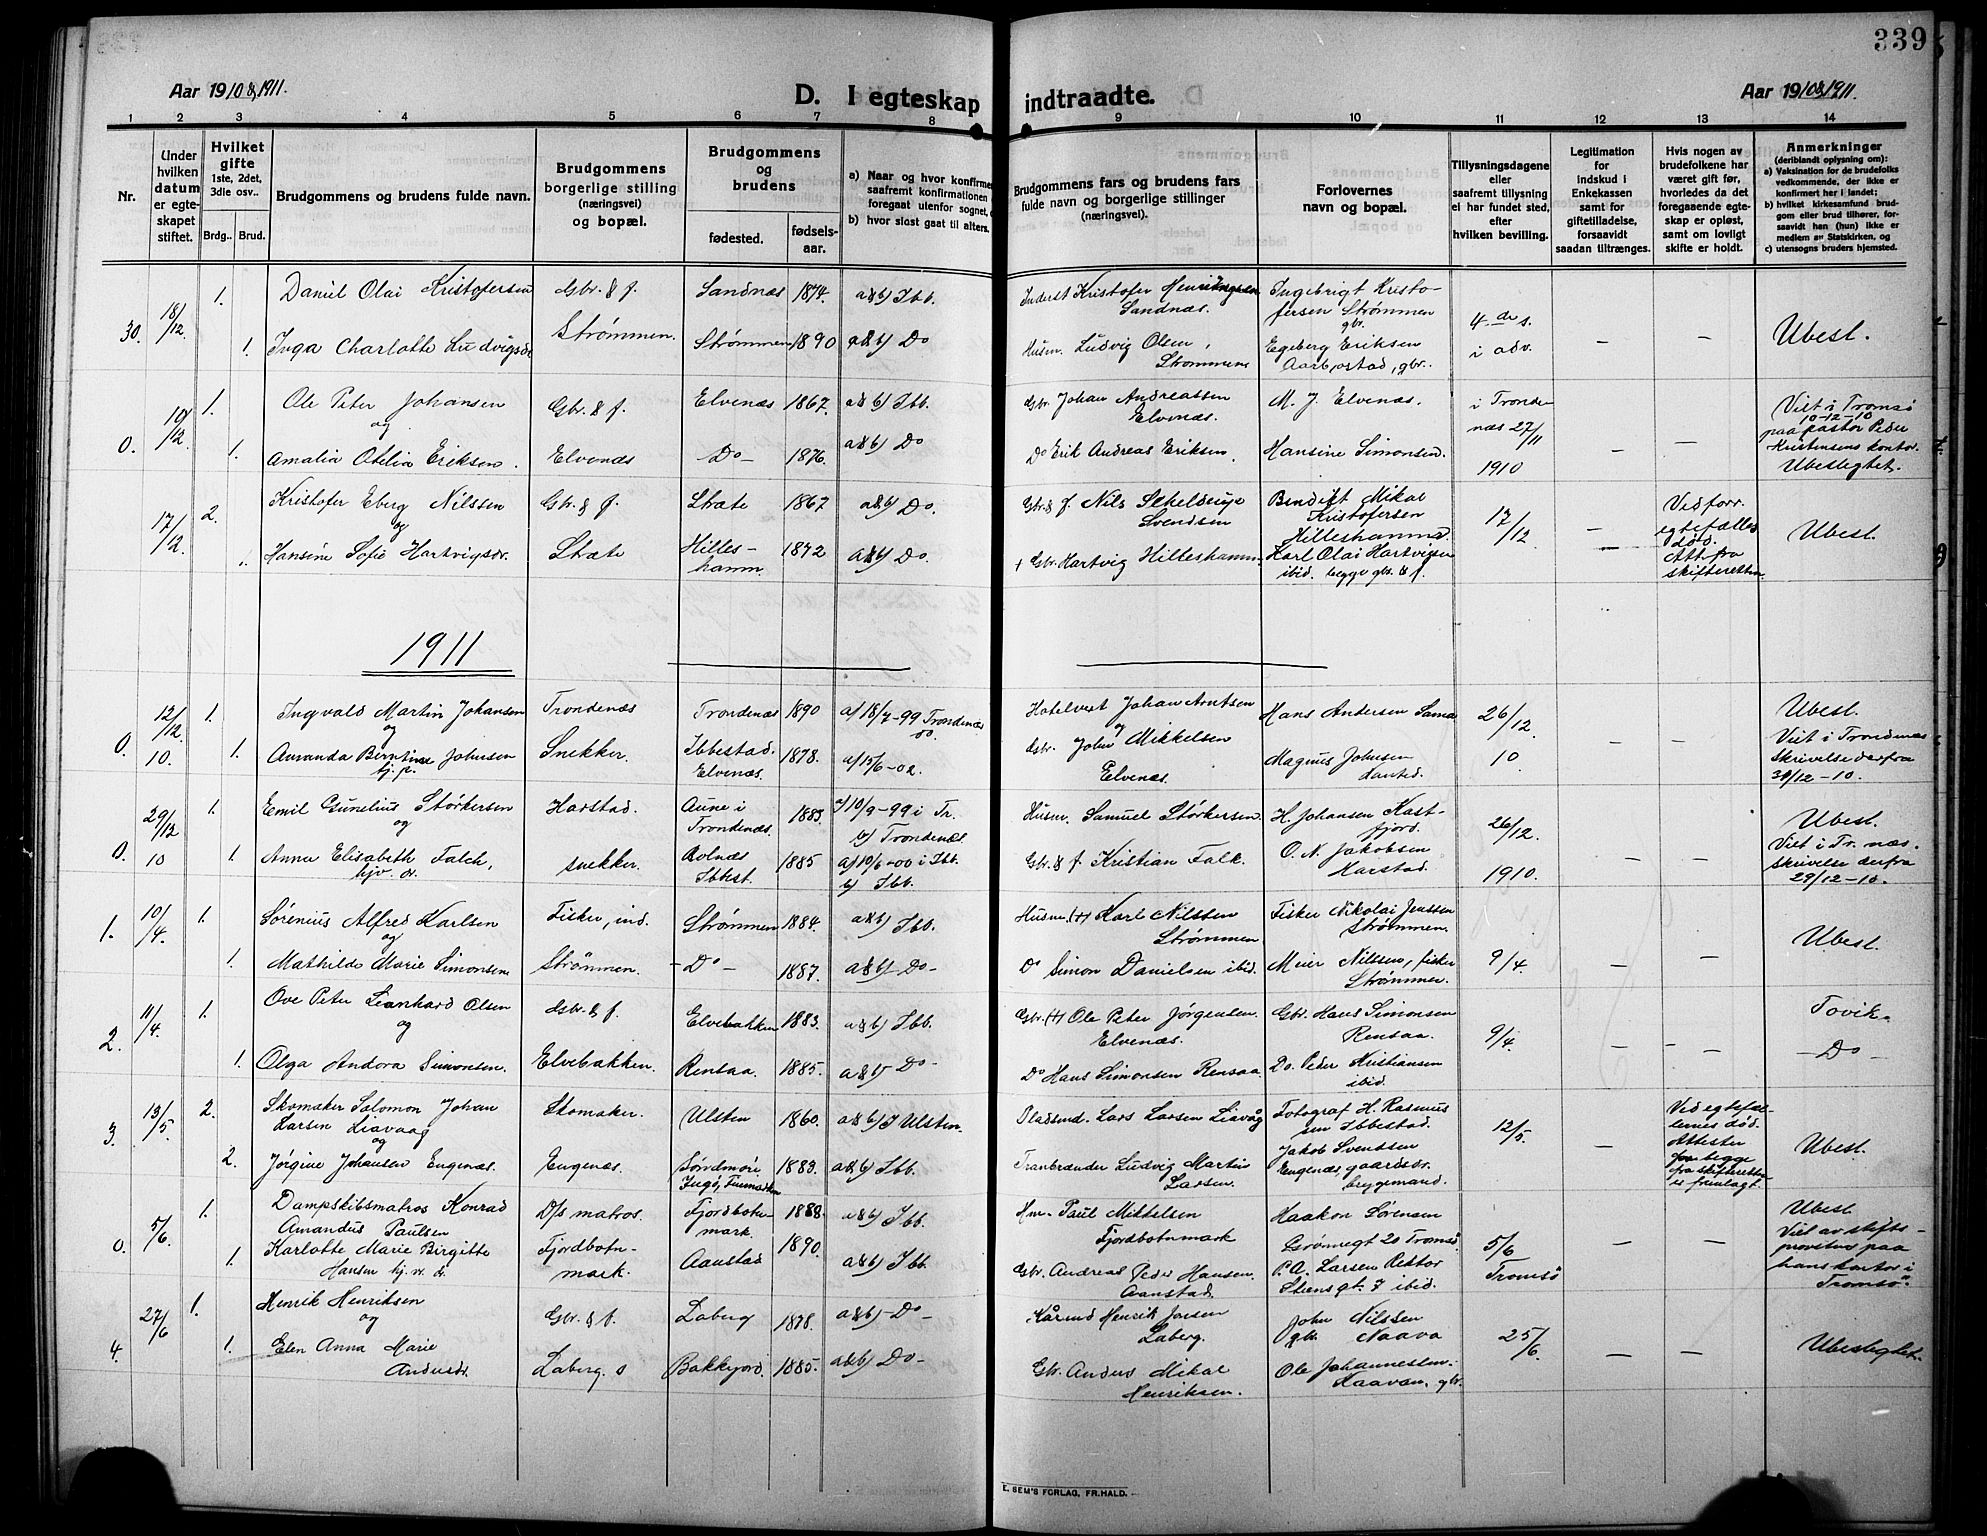 339
Aar 1910 & 1911.
D. I egteskap indtraadte.
Aar 1910 & 1911.
1 2 3 4 5 6 7 8 9 10 11 12 13 14
Nr.
Under hvilken datum er egteskapet stiftet.
Hvilket gifte 1ste, 2det, 3die osv..
Brdg.. Brud.
Brudgommens og brudens fulde navn.
Brudgommens borgerlige stilling (næringsvei) og bopæl.
Brudgommens og brudens
fødested. fødsels-aar.
a) Naar og hvor konfirmer
saafremt konfirmationen
foregaat utenfor sognet,
b) hvor sidst gaat til alters.
Brudgommens fars og brudens fars fulde navn og borgerlige stillinger (næringsvei).
Forlovernes navn og bopæl.
Tillysningsdagene eller saafremt tillysning ei har fundet sted, efter hvilken bevilling.
Legitimation for indskud i Enkekassen samt for giftetilladelse, forsaavidt saadan tiltrænges.
Hvis nogen av brudefolkene har været gift før, hvorledes da det foregaaende egteskap er opløst, samt om lovligt skifte er holdt.
Anmerkninger
(deriblandt oplysning om):
a) Vaksination for de brudefolks vedkommende, der ikke er konfirmert her i landet;
b) hvilket kirkesamfund brudgom eller brud tilhører, forsaavidt han (hun) ikke er medlem av Statskirken, og
c) utensogns bruders hjemsted.
30. 18/12 1. Daniel Olai Kristofersen Gbr. & f. Sandnæs 1874. a & b) Ibb. Inderst Kristofer Sandnæs. Ingebrigt Kristofersen Strømmen gbr. 4. de s. i adv. – – Ubest.
1. Inga Charlotte Ludvigsdr Strømmen. Strømmen 1890 a & b) Do Husm. Ludvig Olsen, Strømmen Egeberg Eriksen gbr.
0. 10/12 1. Ole Peter Johansen og Gbr. & f. Elvenæs 1867. a & b) Ibb. Gbr. Johan Andreassen Elvenæs. M. J. Elvenæs. i Trondenæs 27/11 1910 – – Viet i Tromsø 10-12-10 paa pastor Peder Kristensens kontor. Ubeslegtet.
1. Amalia Otelia Eriksen. Elvenæs – Do – 1876. a & b) Do Do Erik Andreas Eriksen. Hansine Simonsen.
17/12 2. Kristofer Eberg Nilssen og Gbr. & f. Stræte 1867 a & b) Do. Gbr. & f. Nils Svendsen Bendikt Mikal Kristofersen Hilleshamn. 17/12 – Ved forr. egtefælles død. Att. fra skifteretten Ubest.
1. Hansine Sofie Hartvigsdr. Stræte Hilleshamn. 1872 a & b) Do. + Gbr. Hartvig Hilleshamn. Karl Olai Hartvigsen ibid. begge gbr. & f.
1911
0. 12/12 10. 1. Ingvald Martin Johansen og Trondenæs Trondenæs 1890 a) 18/7-99 Trondenæs Do. Hotelvert Johan Arntsen og Hans Andersen Sama 26/12 10 – – Ubest. Viet i Trondenæs Skrivelse derfra 30/12-10.
1. Amanda Berntine Johnsen hj. p. Snekker. Ibbestad. Elvenæs. 1878. a) 15/6-02. Gbr. John Mikkelsen Elvenæs. Magnus Johnsen
0. 29/12 10 1. Emil Gunelius Størkersen og Harstad. Aune i Trondenæs. 1883. a) 10/9-99 i Tr. b) Trondenæs. Husm. Samuel Størkersen. H. Johansen Kastfjord. 26/12. 1910. – – Ubest. Viet i Tr.næs. Skrivelse derfra 29/12-10.
1. Anna Elisabeth Falch, hjv. dr. snekker. Rolnæs Ibbest. 1885 a) 10/6-00 i Ibb. b) Ibb. Gbr. & f. Kristian Falk. O. N. Jakobsen Harstad.
1. 10/4 1. Sørenius Alfred Karlsen og Fisker, ind. Strømmen 1884. a & b) Ibb. Husm. (+) Karl Nilssen Strømmen. Fisker Nikolai Jenssen Strømmen. 9/4. – – Ubest.
1. Mathilde Marie Simonsen Strømmen. – Do – 1887. a & b) – Do – Do Simon Danielsen ibid. Meier Nilssen, fisker Strømmen.
2. 11/4 1. Ove Peter Leonhard Olsen og Gbr. & f. Elvebakken 1883. a & b) Ibb. Gbr. (+) Ole Peter Jørgensen. Elvenæs. Gbr. Hans Simonsen Rensaa. 9/4. – – Tovik.
1. Olga Andora Simonsen. Elvebakken. Rensaa. 1885. a & b) – Do – Do Hans Simonsen Rensaa. Do. Peder Kristiansen ibid. – Do –
3. 13/5 2. Skomaker Salomon Johan Larsen Liavaag og Skomaker. Ulsten 1860. a & b) I Ulsten. Pladsmd. Lars Larsen Liavåg Fotograf H. Rasmussen Ibbestad. 12/5. – Ved egtefællernes død. Attester for begge fra skifteretten er fremlagt. Ubest.
2. Jørgine Johansen Engenæs. Engenæs. Søndmøre Ingø, Finmarken 1883. a & b) Ibb. Tranbrænder Ludvig Martin Larsen. Jakob Svendsen Engenæs, gaardsdr. bryggemand.
0. 5/6 1. Dampskibsmatros Konrad Amandus Paulsen D/s matros. Fjordbotnmark. 1888. a & b) Ibb. Hm. Paul Mikkelsen Fjordbotnmark Haakon Sørensen Grønnegt 20 Tromsø. 5/6 Tromsø – – Ubest Viet av stiftsprovsten paa hans kontor i Tromsø.
1. Karlotte Marie Birgitte Hansen hj. v. dr. Fjordbotnmark. Aanstad 1890. a & b) Ibb. Gbr. Andreas Peder Hansen. Aanstad. P. A. Larsen Rektor Steens gt. 7 ibid.
4. 27/6 1. Henrik Henriksen og Gbr. & f. Laberg 1878. a & b) – Do – Kårmd Henrik Jensen Laberg. John Nilssen gbr. 25/6. – – Ubeslegtet.
1. Elen Anna Marie Andersdr. Laberg. Bakkejord. 1885. a & b) Do – Gbr. Anders Mikal Henriksen. Ole Johannessen. gbr.
E. SEM'S FORLAG, FR.HALD.